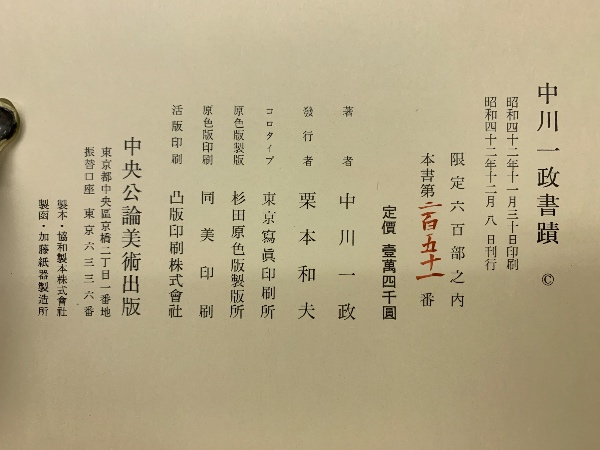 中川一政書蹟 ©
昭和四十二年十一月三十日印刷
昭和四十二年十二月八日刊行
限定六百部之内
本書第二百五十一番
定價 壹萬四千圓
著者 中川一政
發行者 栗本和夫
コロタイプ 東京寫眞印刷所
原色版製版 杉田原色版製版所
原色版印刷 同美印刷
活版印刷 凸版印刷株式會社
中央公論美術出版
東京都中央區京橋二丁目一番地
振替口座 東京六三三六番
製本・協和製本株式會社
製函・加藤紙器製造所